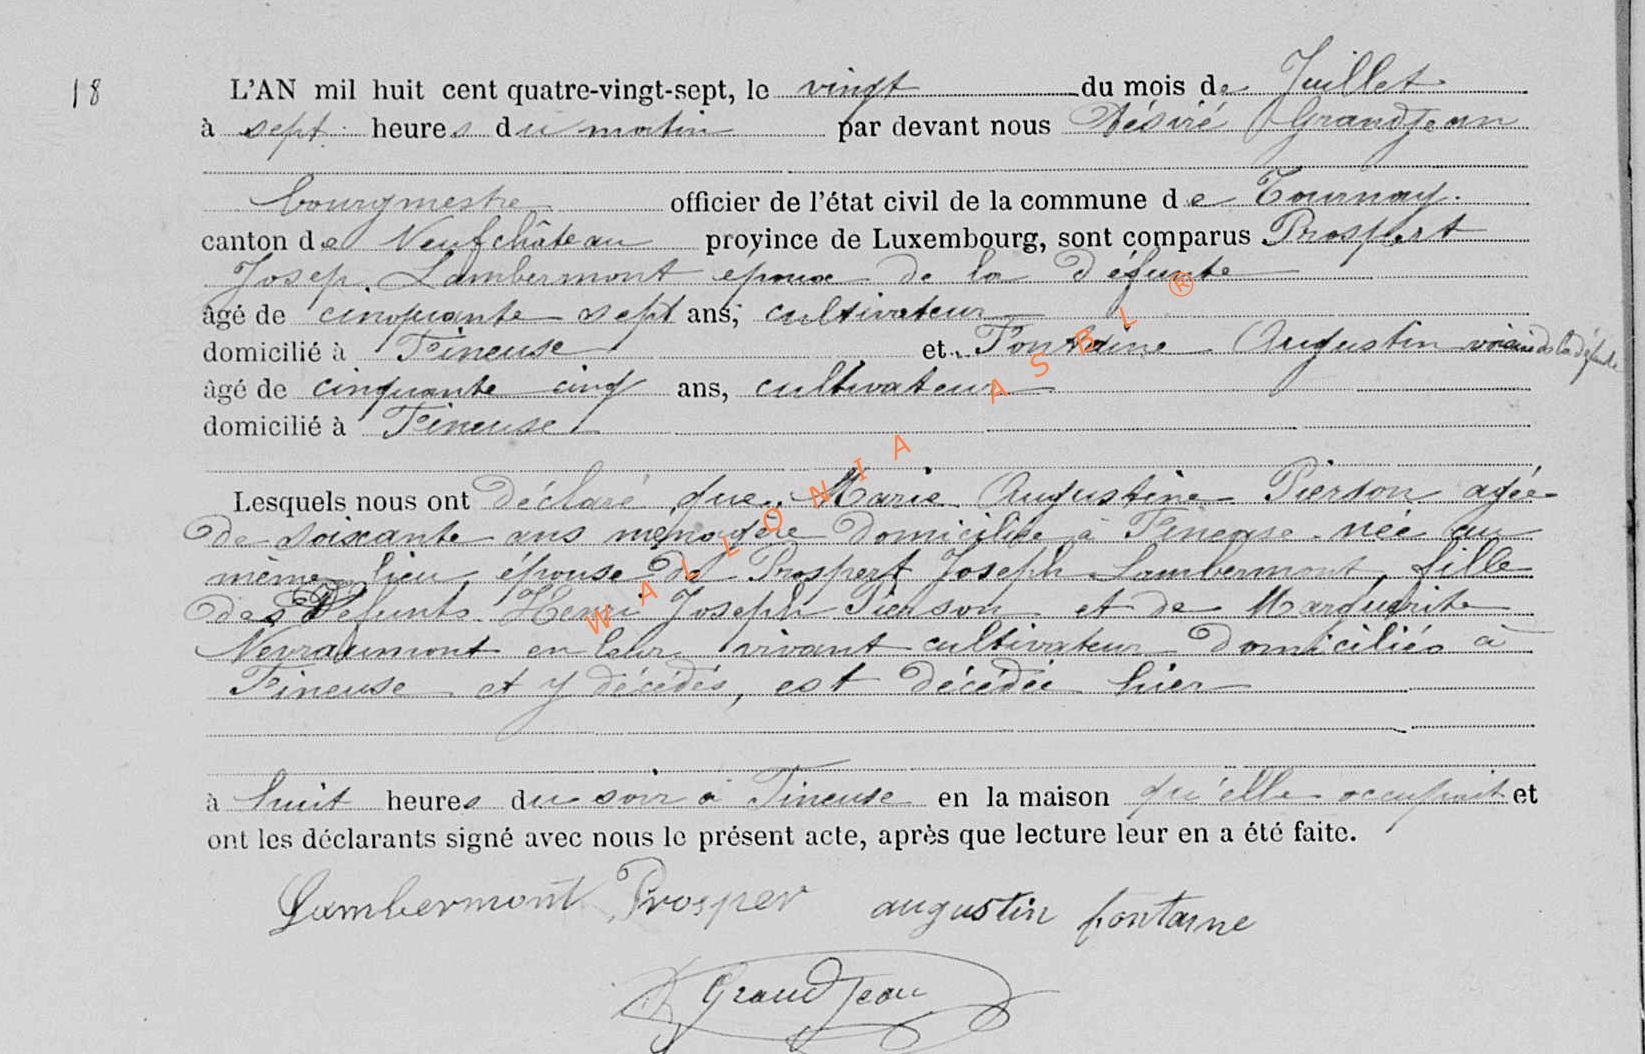 18
L'AN mil huit cent quatre-vingt-sept, le vingt du mois de Juillet
à sept heures du matin par devant nous Désiré Grandjean
bourgmestre officier de l'état civil de la commune de Tournay.
canton de Neufchâteau province de Luxembourg, sont comparus Prospert
Josep Lambermont epoux de la défunte
âgé de cinquante sept ans, cultivateur
domicilié à Fineuse et Fontaine Augustin voisin de la défunte
âgé de cinquante cinq ans, cultivateur
domicilié à Fineuse
Lesquels nous ont déclaré que Marie Augustine Pierson agée
de soixante ans ménagère domiciliée à Fineuse née au
même lieu, épouse de Prospert Joseph Lambermont, fille
des défunts Henri Joseph Pierson et de Marguerite
Nevraumont en leur vivant cultivateur domiciliés à
Fineuse et y décédés, est décédée hier
à huit heures du soir à Fineuse en la maison qu'elle occupait et
ont les déclarants signé avec nous le présent acte, après que lecture leur en a été faite.
Lambermont Prosper augustin fontaine
Grandjean
WALLONIA ASBL ®